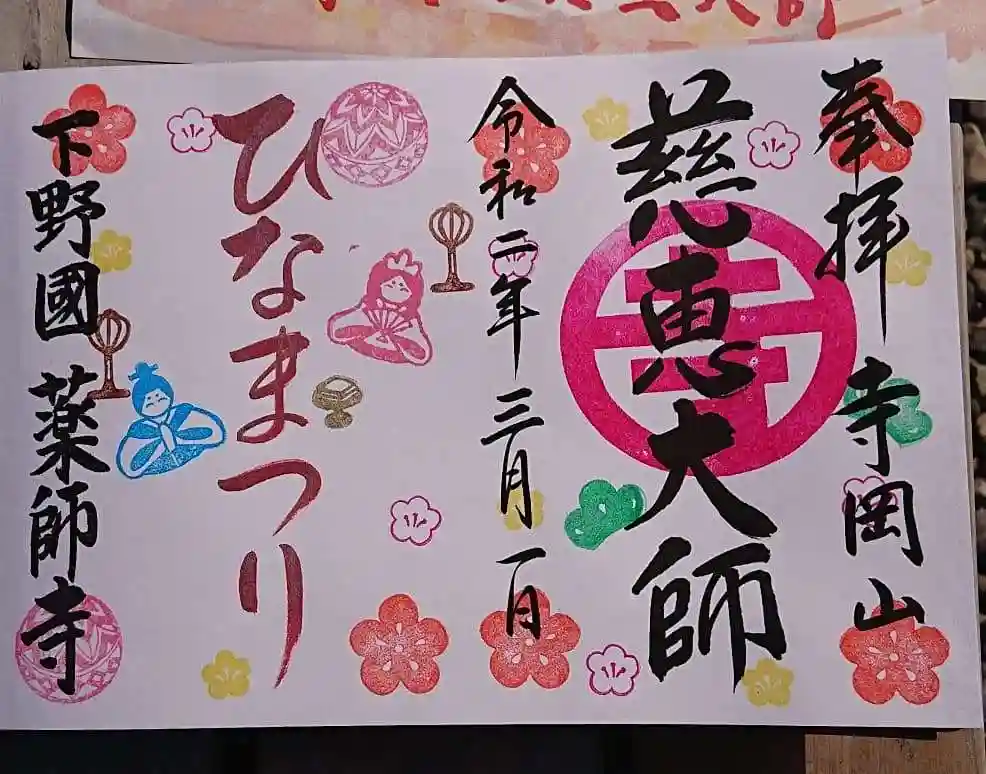 奉拝 寺岡山
慈恵大師
令和二年三月一日
ひなまつり
下野國 薬師寺
寺